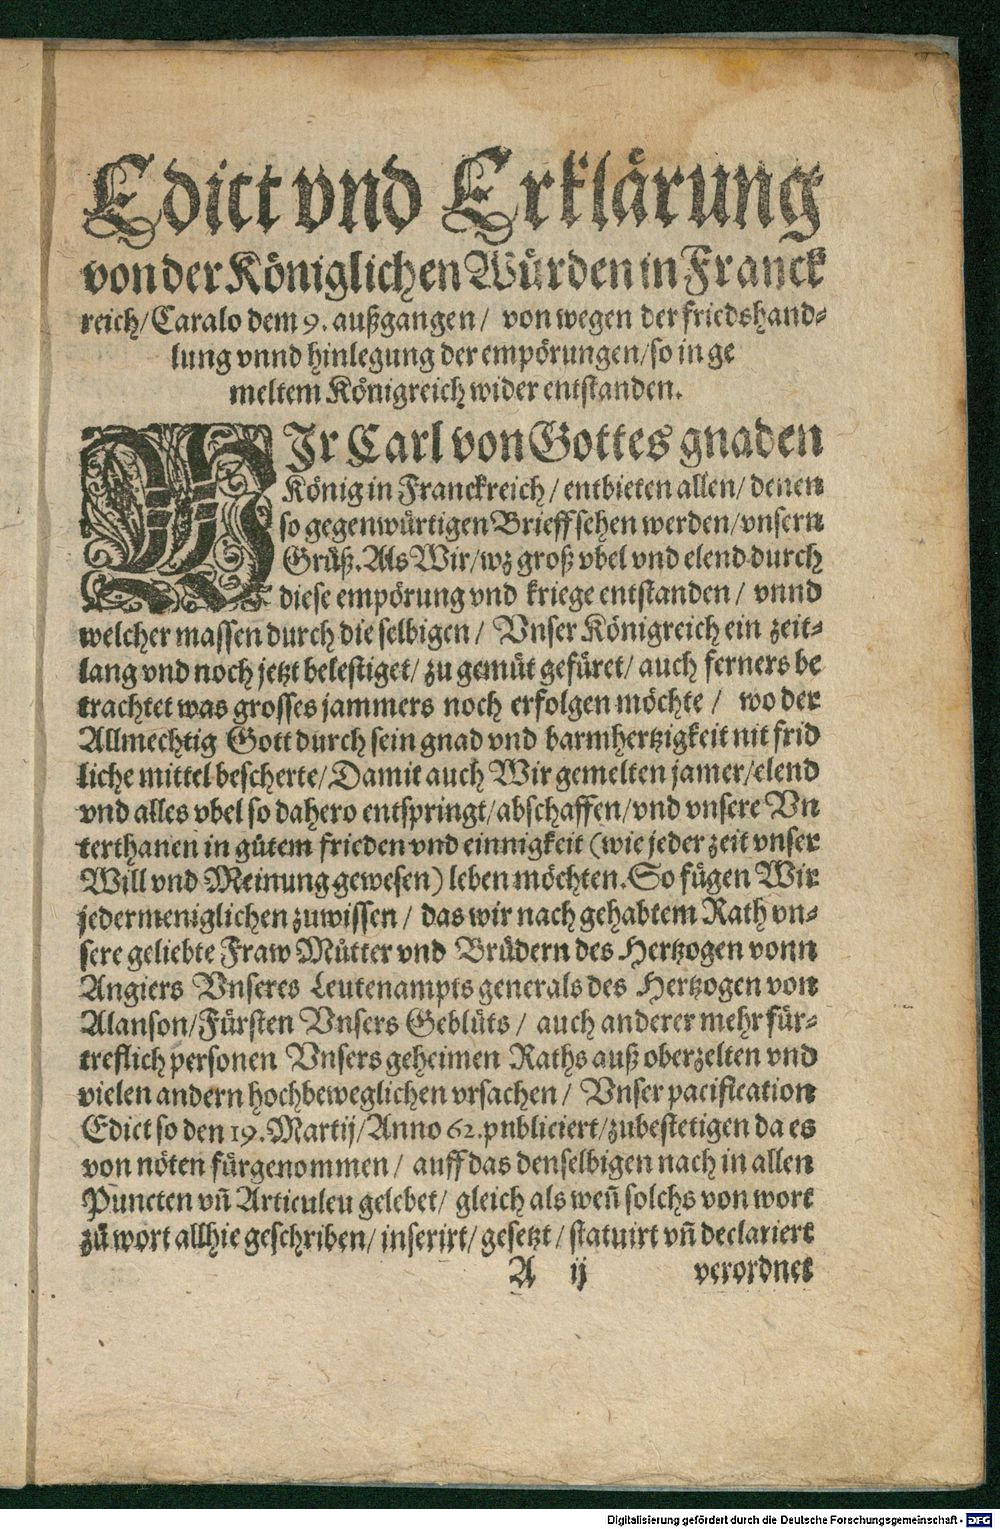 Edict vnd Erklärung
von der Königlichen Würden in Franck
reich/ Caralo dem 9. außgangen/ von wegen der friedshand-
lung vnnd hinlegung der empörungen/ so in ge
meltem Königreich wider entstanden.
WIr Carl von Gottes gnaden
König in Franckreich/ entbieten allen/ denen
so gegenwürtigen Brieff sehen werden/ vnsern
Grůß. Als Wir/ wz groß vbel vnd elend durch
diese empörung vnd kriege entstanden/ vnnd
welcher massen durch die selbigen/ Vnser Königreich ein zeit-
lang vnd noch jetzt belestiget/ zu gemüt gefüret/ auch ferners be
trachtet was grosses jammers noch erfolgen möchte/ wo der
Allmechtig Gott durch sein gnad vnd barmhertzigkeit nit frid
liche mittel bescherte/ Damit auch Wir gemelten jamer/ elend
vnd alles vbel so dahero entspringt/ abschaffen/ vnd vnsere Vn
terthanen in gůtem frieden vnd einnigkeit (wie jeder zeit vnser
Will vnd Meinung gewesen) leben möchten. So fügen Wir
jedermeniglichen zuwissen/ das wir nach gehabtem Rath vn-
sere geliebte Fraw Můtter vnd Brüdern des Hertzogen vonn
Angiers Vnseres Leutenampts generals des Hertzogen von
Alanson/ Fürsten Vnsers Geblüts/ auch anderer mehr für-
treflich personen Vnsers geheimen Raths auß oberzelten vnd
vielen andern hochbeweglichen vrsachen/ Vnser pacification
Edict so den 19. Martij/ Anno 62. pnbliciert/ zubestetigen da es
von nöten fürgenommen/ auff das denselbigen nach in allen
Puncten vñ Articuleu gelebet/ gleich als weñ solchs von wort
zů wort allhie geschriben/ inserirt/ gesetzt/ statuirt vñ declariert
A ij verordnet
Digitalisierung gefördert durch die Deutsche Forschungsgemeinschaft - DFG